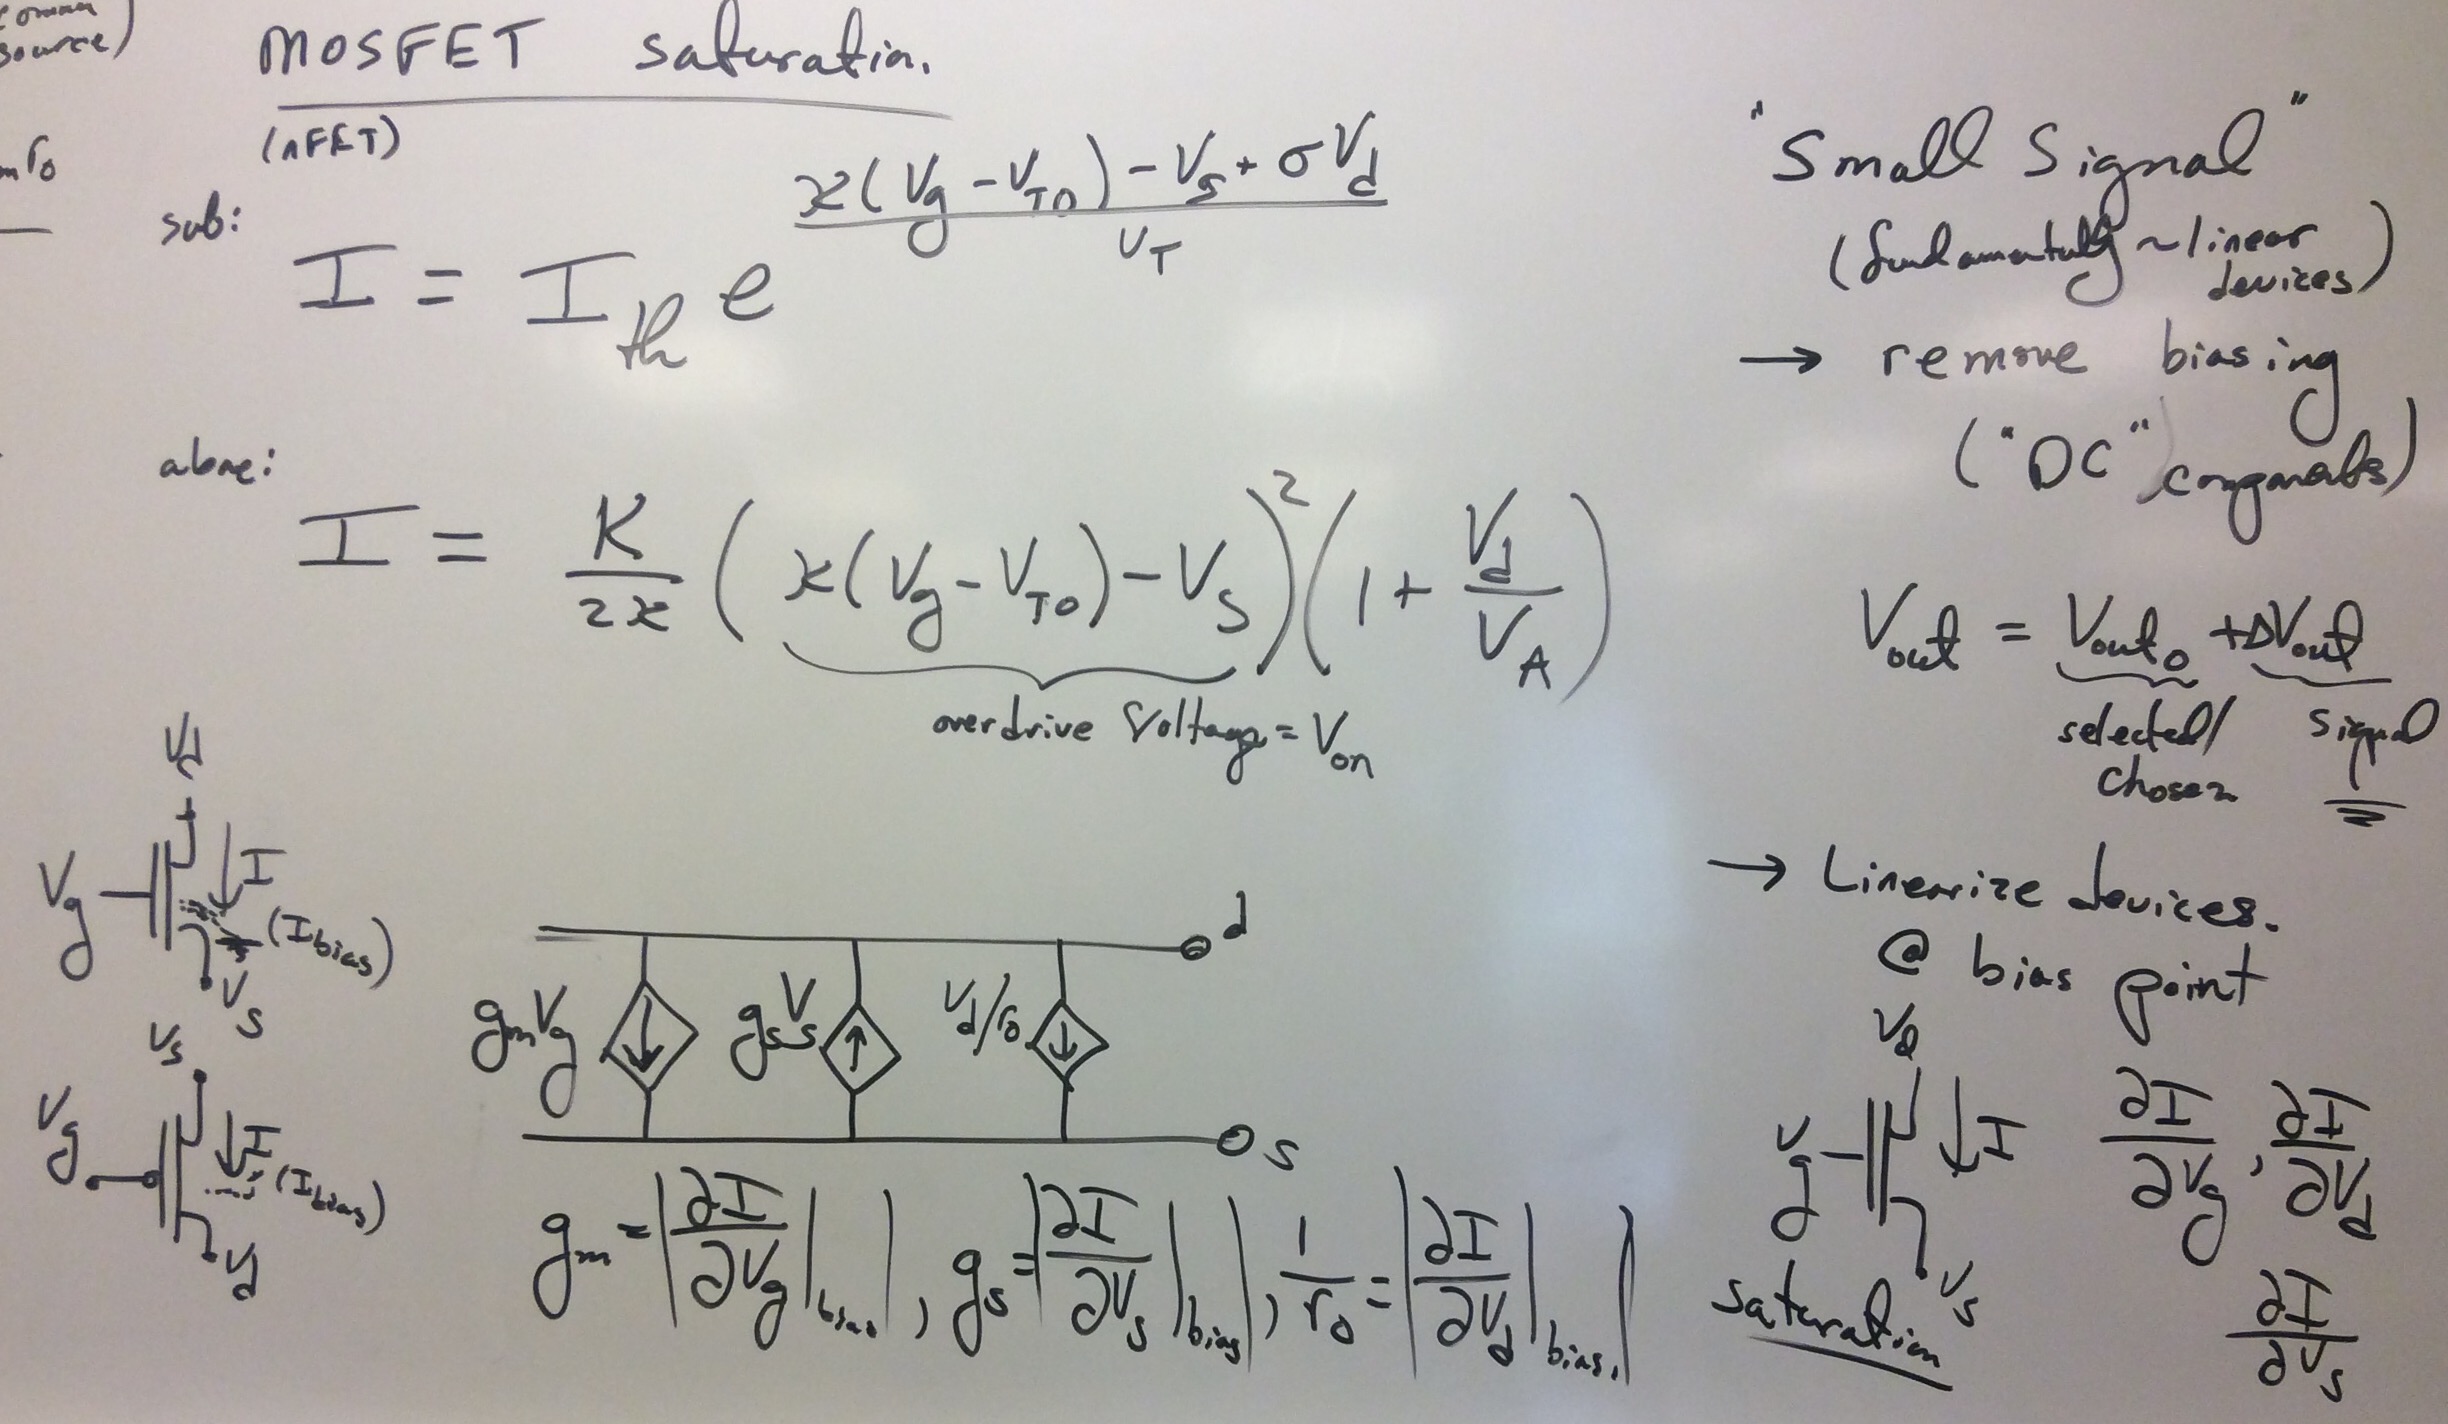 source)
MOSFET saturation.
(nFET)
sub:
I = I_th e^((κ(Vg - V_T0) - Vs + σVd) / U_T)
above:
I = K/2κ (κ(Vg - V_T0) - Vs)² (1 + Vd/V_A)
overdrive Voltage = Von
Vd
Vg
I
(Ibias)
Vs
Vs
Vg
I
(Ibias)
Vd
d
gmVg
gsVs
Vd/ro
s
gm = |∂I/∂Vg|bias|, gs = |∂I/∂Vs|bias|, 1/ro = |∂I/∂Vd|bias.|
"Small Signal"
(fundamentally ~linear
devices)
→ remove biasing
("DC" components)
Vout = Vout0 + ΔVout
selected/
chosen
signal
→ Linearize devices.
@ bias point
Vd
Vg
I
Vs
saturation
∂I/∂Vg, ∂I/∂Vd
∂I/∂Vs